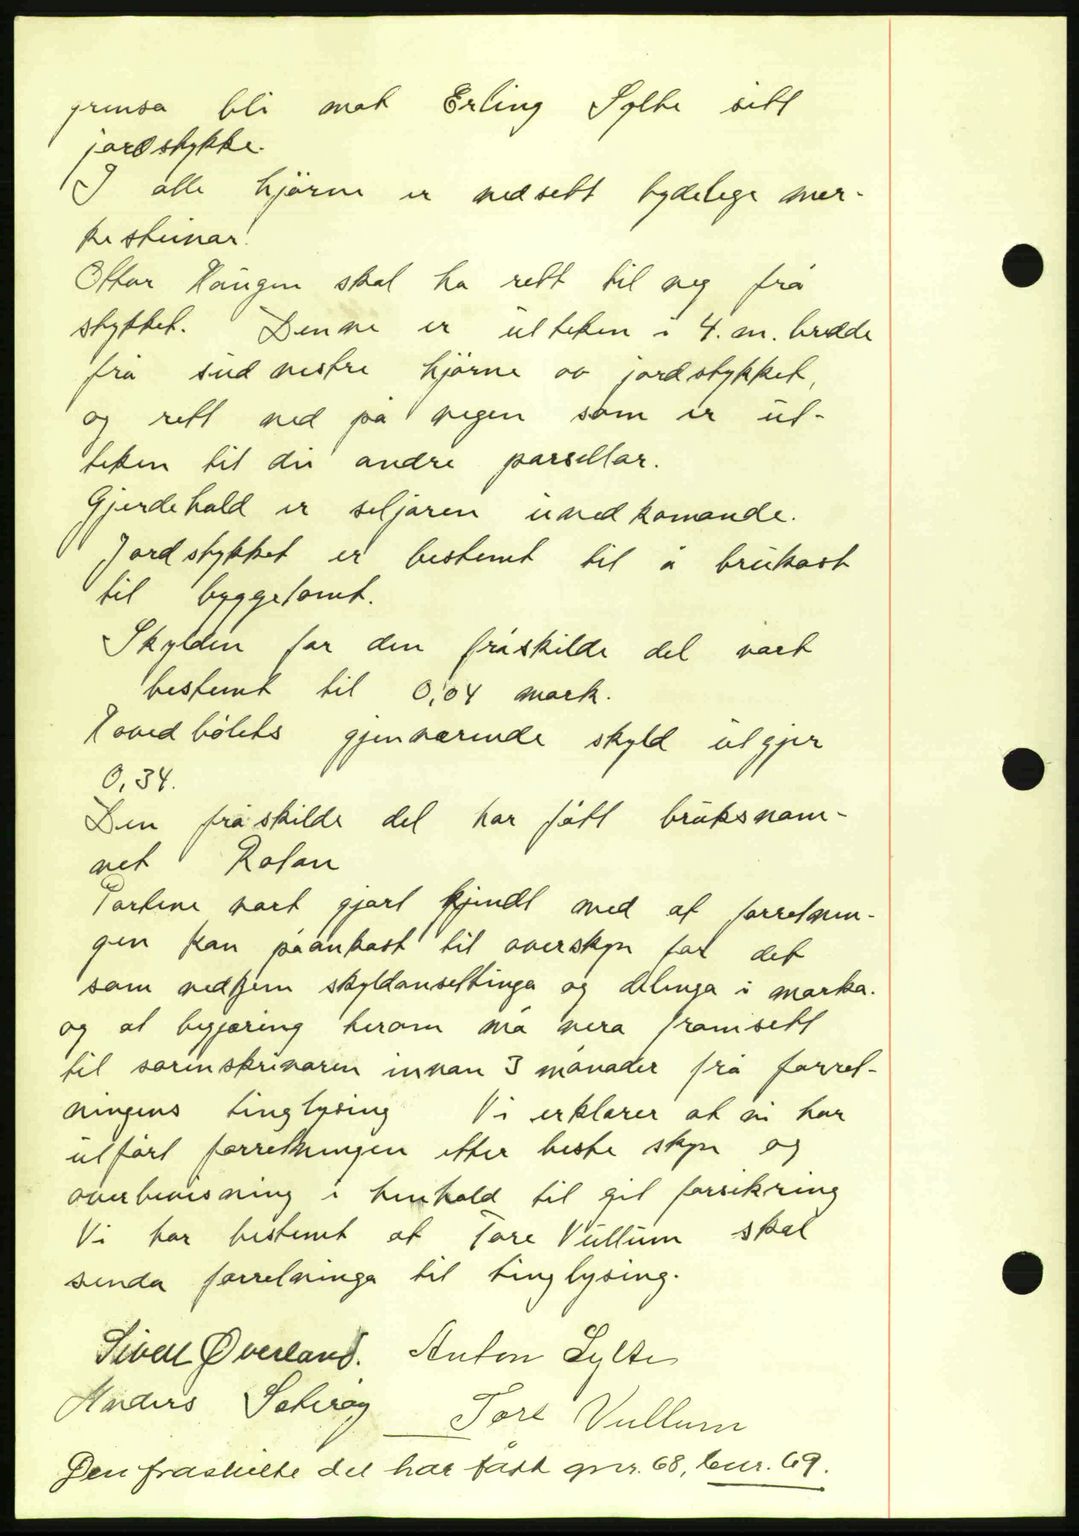 grensa bli mot Erling Sylte sitt
jordstykke.
I alle hjørne er nedsett tydelege mer-
kesteinar.
Ottar Haugen skal ha rett til veg frå
stykket. Denne er utteken i 4. m. bredde
frå sud vestre hjørne av jordstykket,
og rett ned på vegen som er ut-
teken til dei andre parsellar.
Gjerdehald er seljaren uvedkomande.
Jordstykket er bestemt til å brukast
til byggetomt.
Skylden for den fråskilde del vart
bestemt til 0,04 mark.
Hovedbølets gjenværende skyld utgjer
0,34.
Den fråskilde del har fått bruksnam-
net
Partene vart gjort kjendt med at forretnin-
gen kan påankast til overskyn for det
som vedkjem skyldansettinga og delinga i marka.
og at begjæring herom må vera framsett
til sorenskrivaren innan 3 månader frå forret-
ningens tinglysing Vi erklærer at vi har
utført forretningen etter beste skyn og
overbevisning i henhold til git forsikring
Vi har bestemt at Tore Vullum skal
senda forretninga til tinglysing.
Sivert Øverland. Anton Sylte
Anders Tore Vullum
Den fraskilte del har fått gnr. 68, bnr. 69.